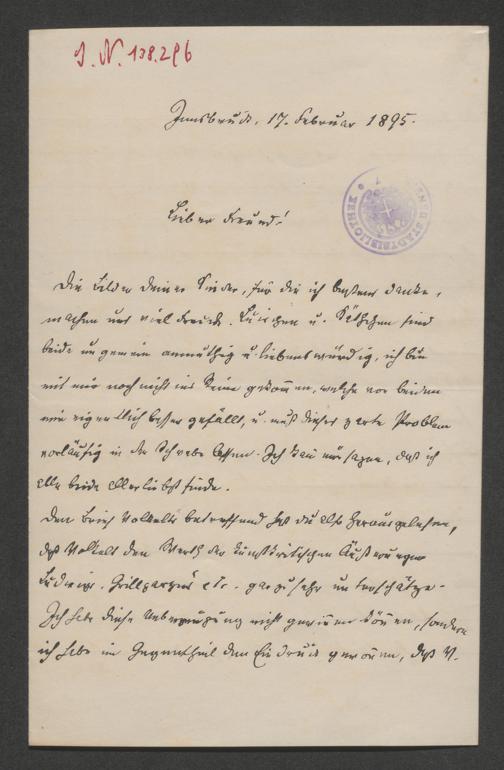 I. N. 138.296
Innsbruck, 17. Februar 1895.
Lieber Freund!
Die Bilder Deiner Kinder, für die ich bestens danke,
machen uns viel Freude. Luischen u. Käthchen sind
beide ungemein anmuthig u. liebenswürdig, ich bin
mit mir noch nicht ins Reine gekom̄en, welche von beiden
mir eigentlich besser gefällt, u. muß dieses zarte Problem
vorläufig in der Schwebe lassen. Ich kan̄ nur sagen, daß ich
alle beide allerliebst finde.
Den Brief Volkelts betreffend hast du also herausgelesen,
daß Volkelt den Werth der kunstkritischen Äußerungen
Ludwigs, Grillparzers etc. gar zu sehr unterschätze.
Ich habe diese Ueberzeugung nicht gewin̄en kön̄en, sondern
ich habe im Gegentheil den Eindruck gewon̄en, daß V.